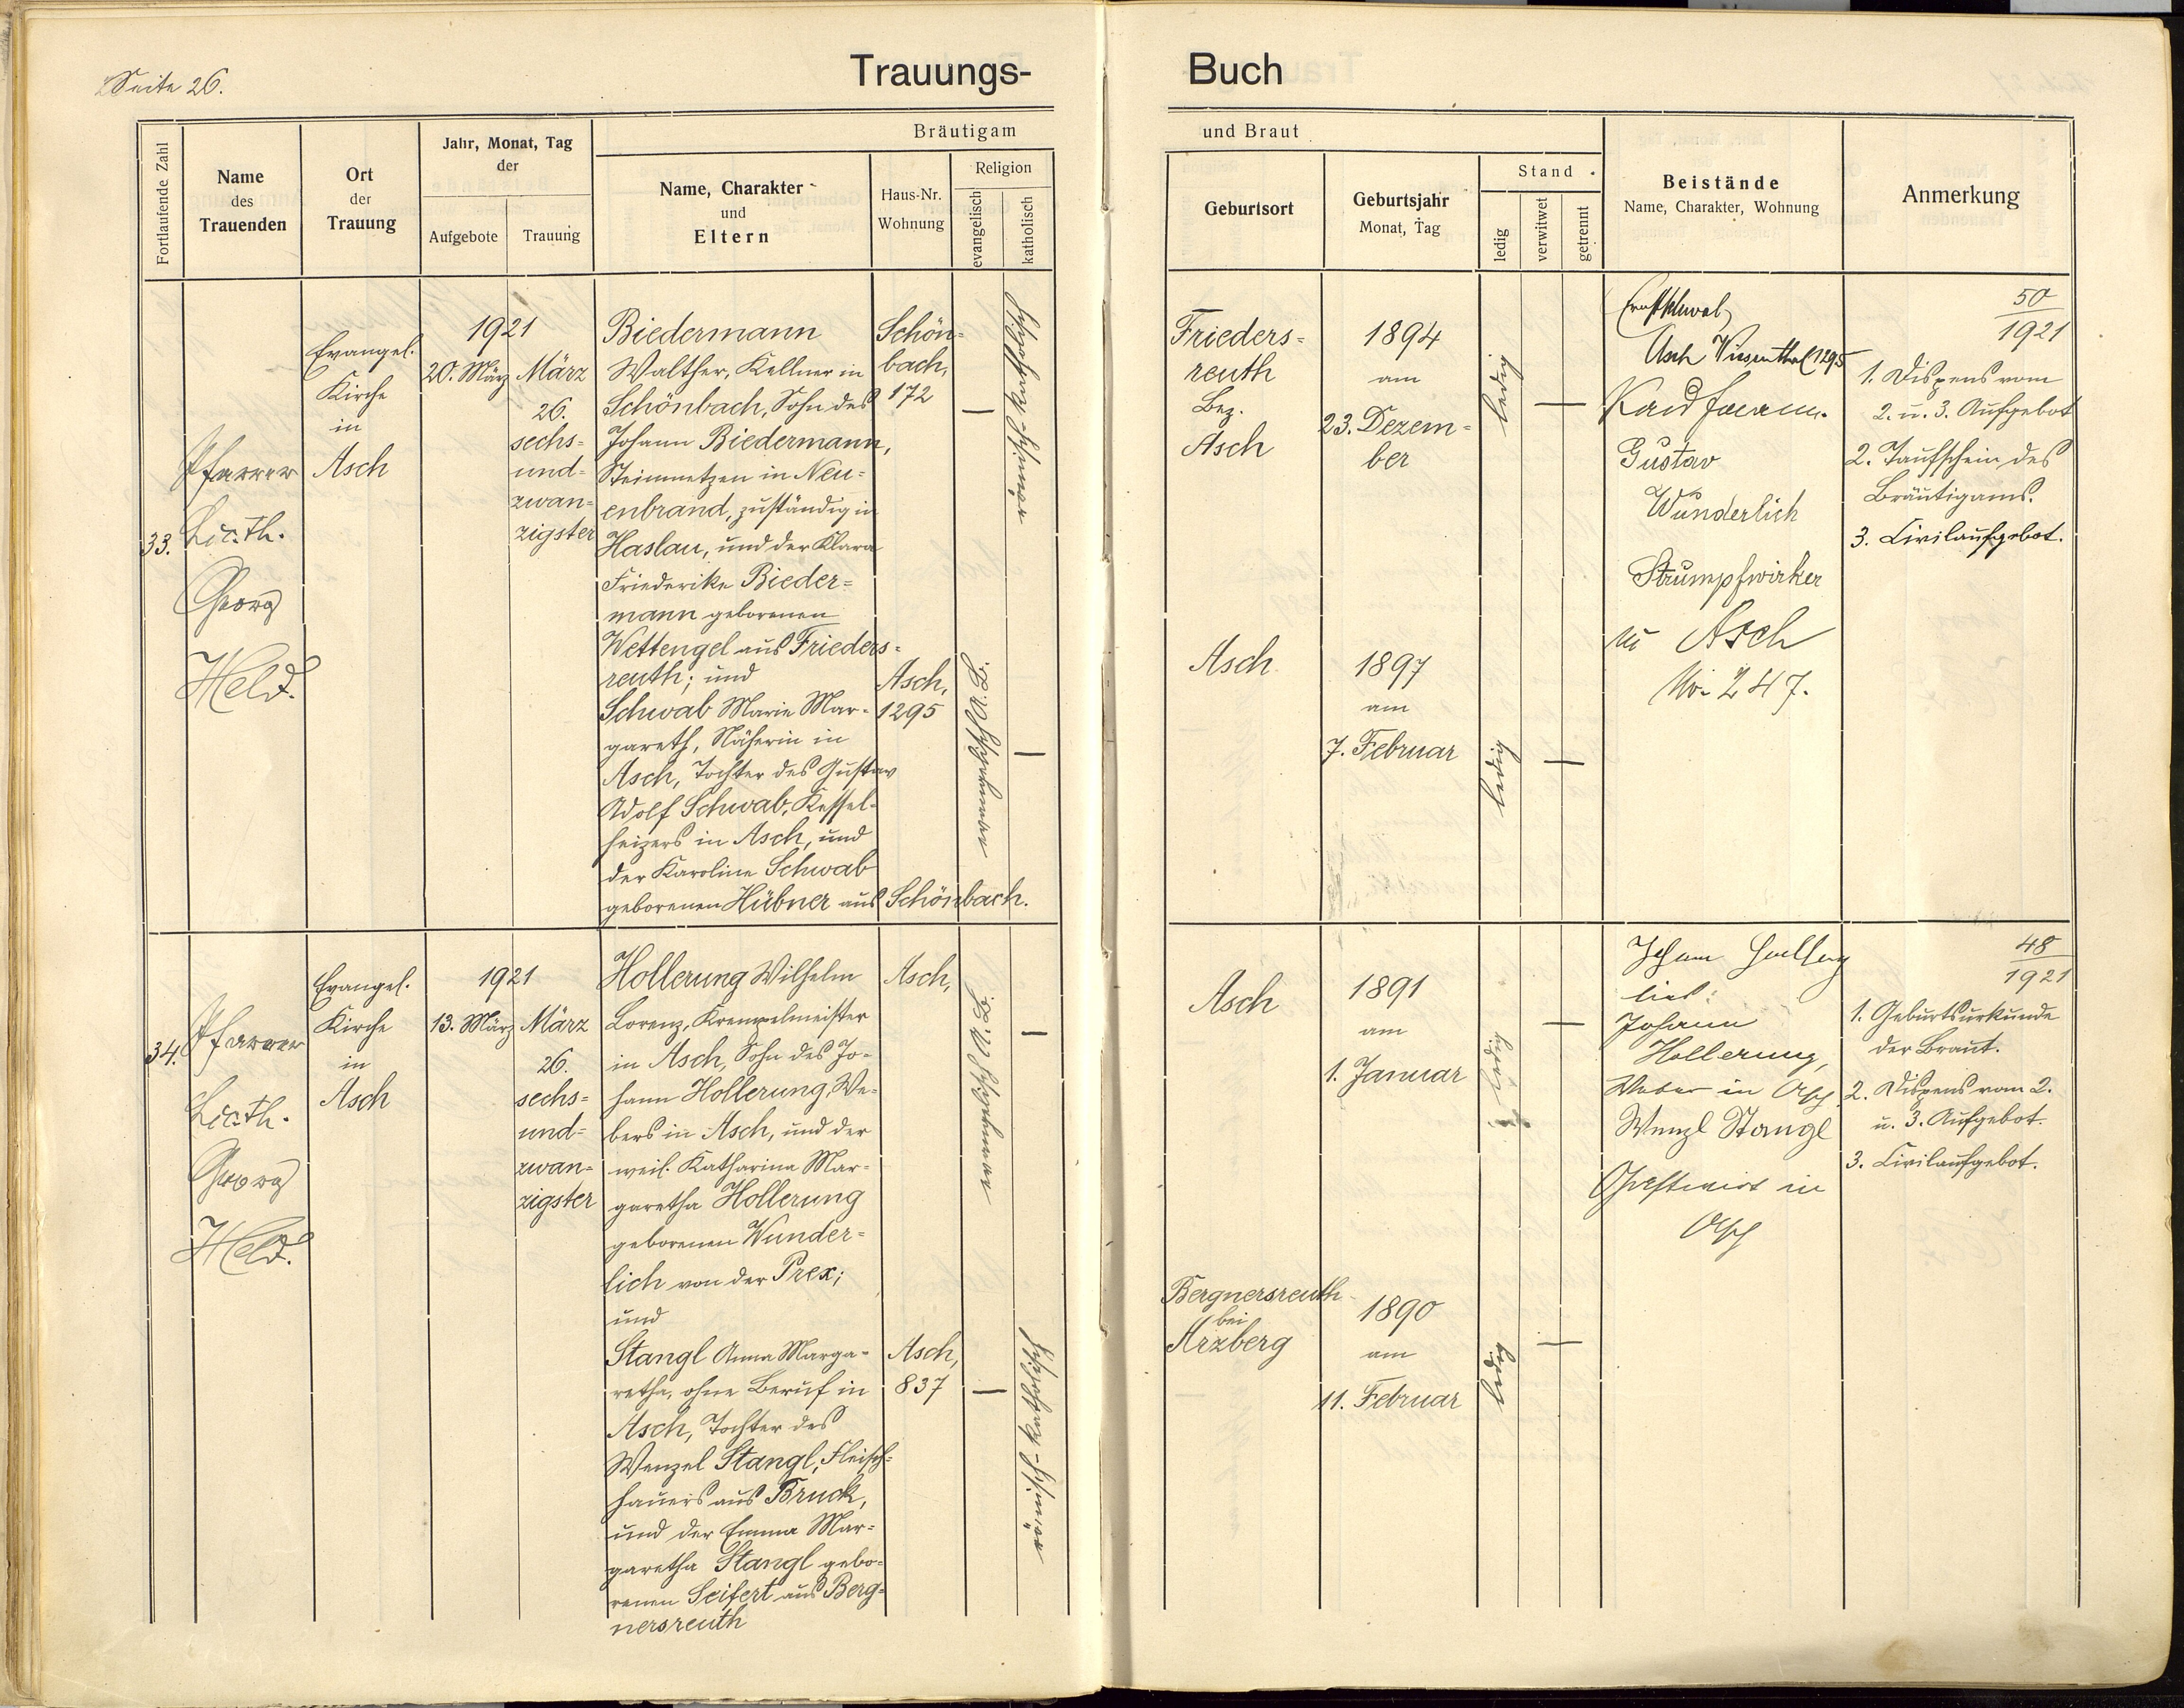 Seite 26.
Trauungs-
Fortlaufende Zahl
Name
des
Trauenden
Ort
der
Trauung
Jahr, Monat, Tag
der
Aufgebote
Trauung
Bräutigam
Name, Charakter
und
Eltern
Haus-Nr.
Wohnung
Religion
evangelisch
katholisch
33.
Pfarrer
Lic. th.
Georg
Held.
Evangel.
Kirche
in
Asch
1921
20. März
März
26.
sechs-
und-
zwan-
zigster
Biedermann
Walther, Kellner in
Schönbach, Sohn des
Johann Biedermann,
Steinmetzen in Neu-
enbrand, zuständig in
Haslau, und der Klara
Friederike Bieder-
mann geborenen
Wettengel aus Frieders-
reuth; und
Schwab Marie Mar-
gareth, Näherin in
Asch, Tochter des Gustav
Adolf Schwab, Kessel-
heizers in Asch, und
der Karoline Schwab
geborenen Hübner aus Schönbach.
Schön-
bach,
172
Asch,
1295
—
römisch-katholisch
evangelisch A.B.
—
34.
Pfarrer
Lic. th.
Georg
Held.
Evangel.
Kirche
in
Asch
1921
13. März
März
26.
sechs-
und-
zwan-
zigster
Hollerung Wilhelm
Lorenz, Krempelmeister
in Asch, Sohn des Jo-
hann Hollerung, We-
bers in Asch, und der
weil. Katharina Mar-
garetha Hollerung
geborenen Wunder-
lich von der Prex;
und
Stangl Anna Marga-
retha, ohne Beruf in
Asch, Tochter des
Wenzel Stangl, Fleisch-
hauers aus Bruck,
und der Emma Mar-
garetha Stangl gebo-
renen Seifert aus Berg-
nersreuth
Asch,
Asch,
837
evangelisch A.B.
—
—
römisch-katholisch
Buch
und Braut
Geburtsort
Geburtsjahr
Monat, Tag
Stand
ledig
verwitwet
getrennt
Beistände
Name, Charakter, Wohnung
Anmerkung
Frieders-
reuth
Bez.
Asch
1894
am
23. Dezem-
ber
ledig
—
Asch
1897
am
7. Februar
ledig
—
Ernst Schwab
Asch Wiesenthal 1295
Kaufmann.
Gustav
Wunderlich
Strumpfwirker
in Asch
No. 247.
50
1921
1. Dispens vom
2. u. 3. Aufgebot
2. Taufschein des
Bräutigams.
3. Civilaufgebot.
Asch
1891
am
1. Januar
ledig
—
Bergnersreuth
bei
Arzberg
1890
am
11. Februar
ledig
—
Johann
Johann
Hollerung,
Weber in Asch
Wenzl Stangl
Gastwirt in
Asch
48
1921
1. Geburtsurkunde
der Braut.
2. Dispens vom 2.
u. 3. Aufgebot.
3. Civilaufgebot.